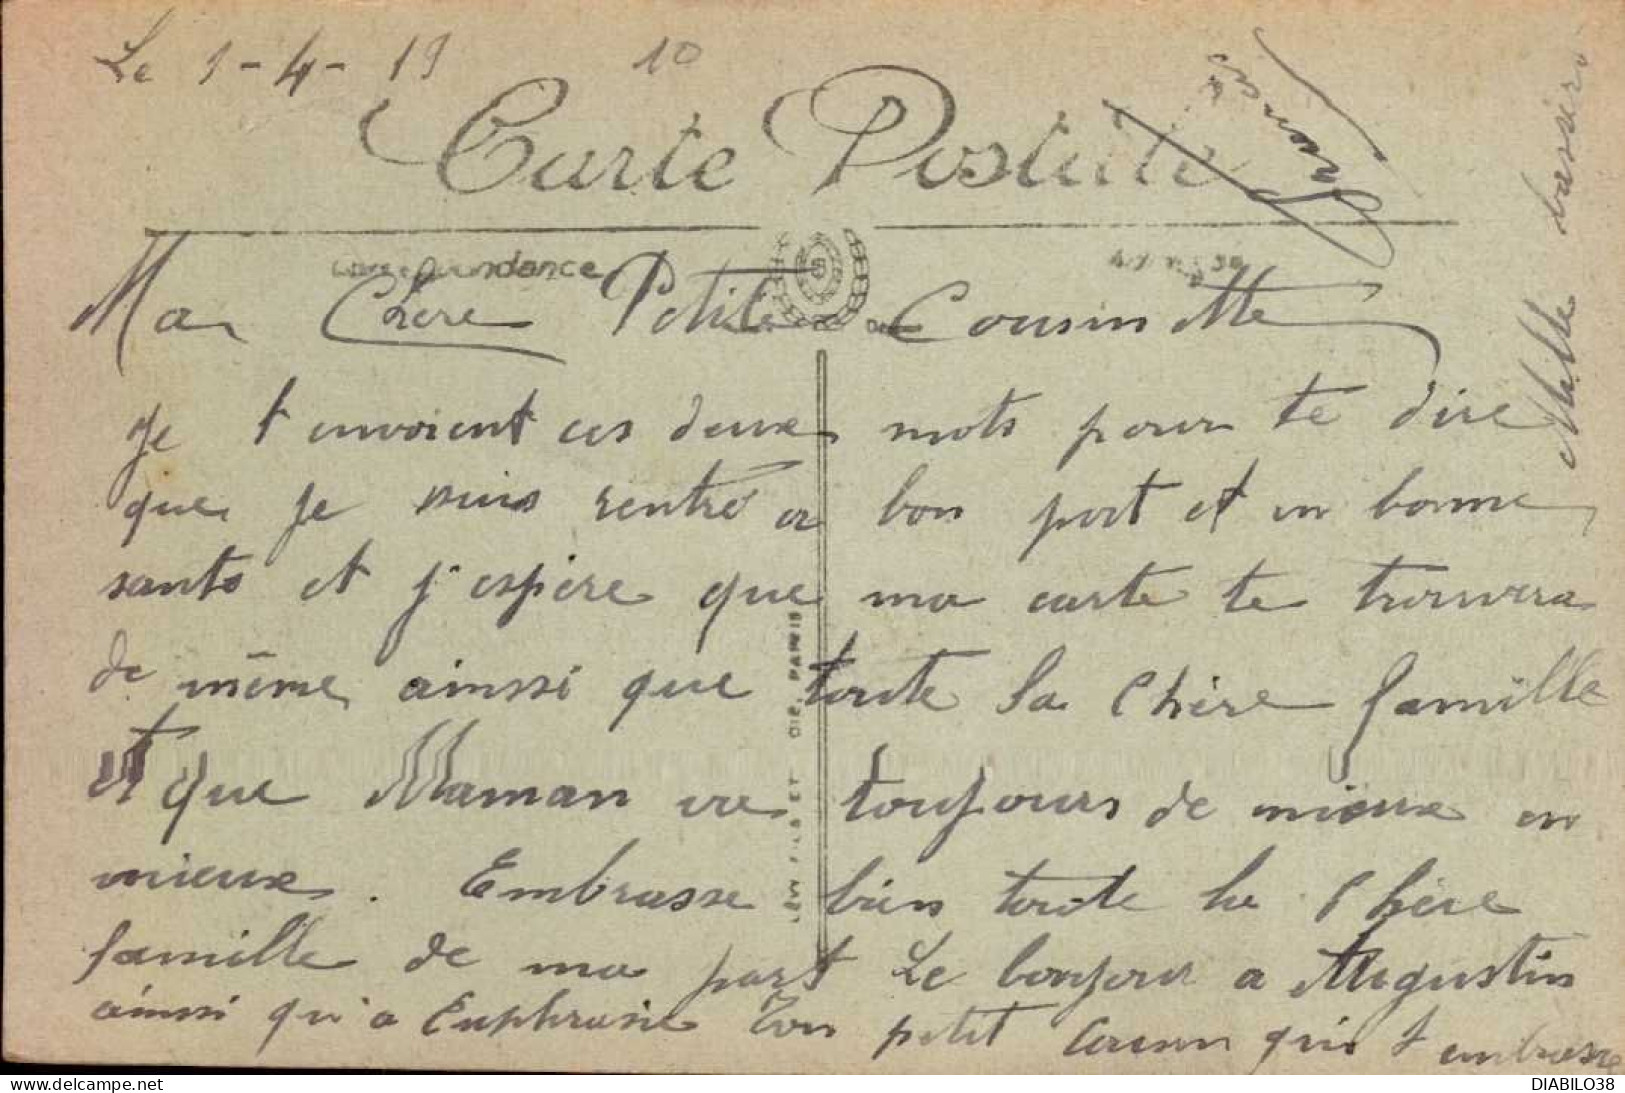 Le 1-4-19
10
Carte Postale
Correspondance
Ma Chère Petite Cousinette
Je t envoient ces deux mots pour te dire
que je suis rentré a bon port et en bonne
santé et j'espère que ma carte te trouvera
de même ainsi que toute la Chère famille
et que Maman va toujours de mieux en
mieux. Embrasse bien toute la Chère
famille de ma part Le bonjour a Augustin
ainsi qu'a Euphrasie Ton petit Cousin qui t embrasse
LEVY FILS ET CIE, PARIS
DIABILO38